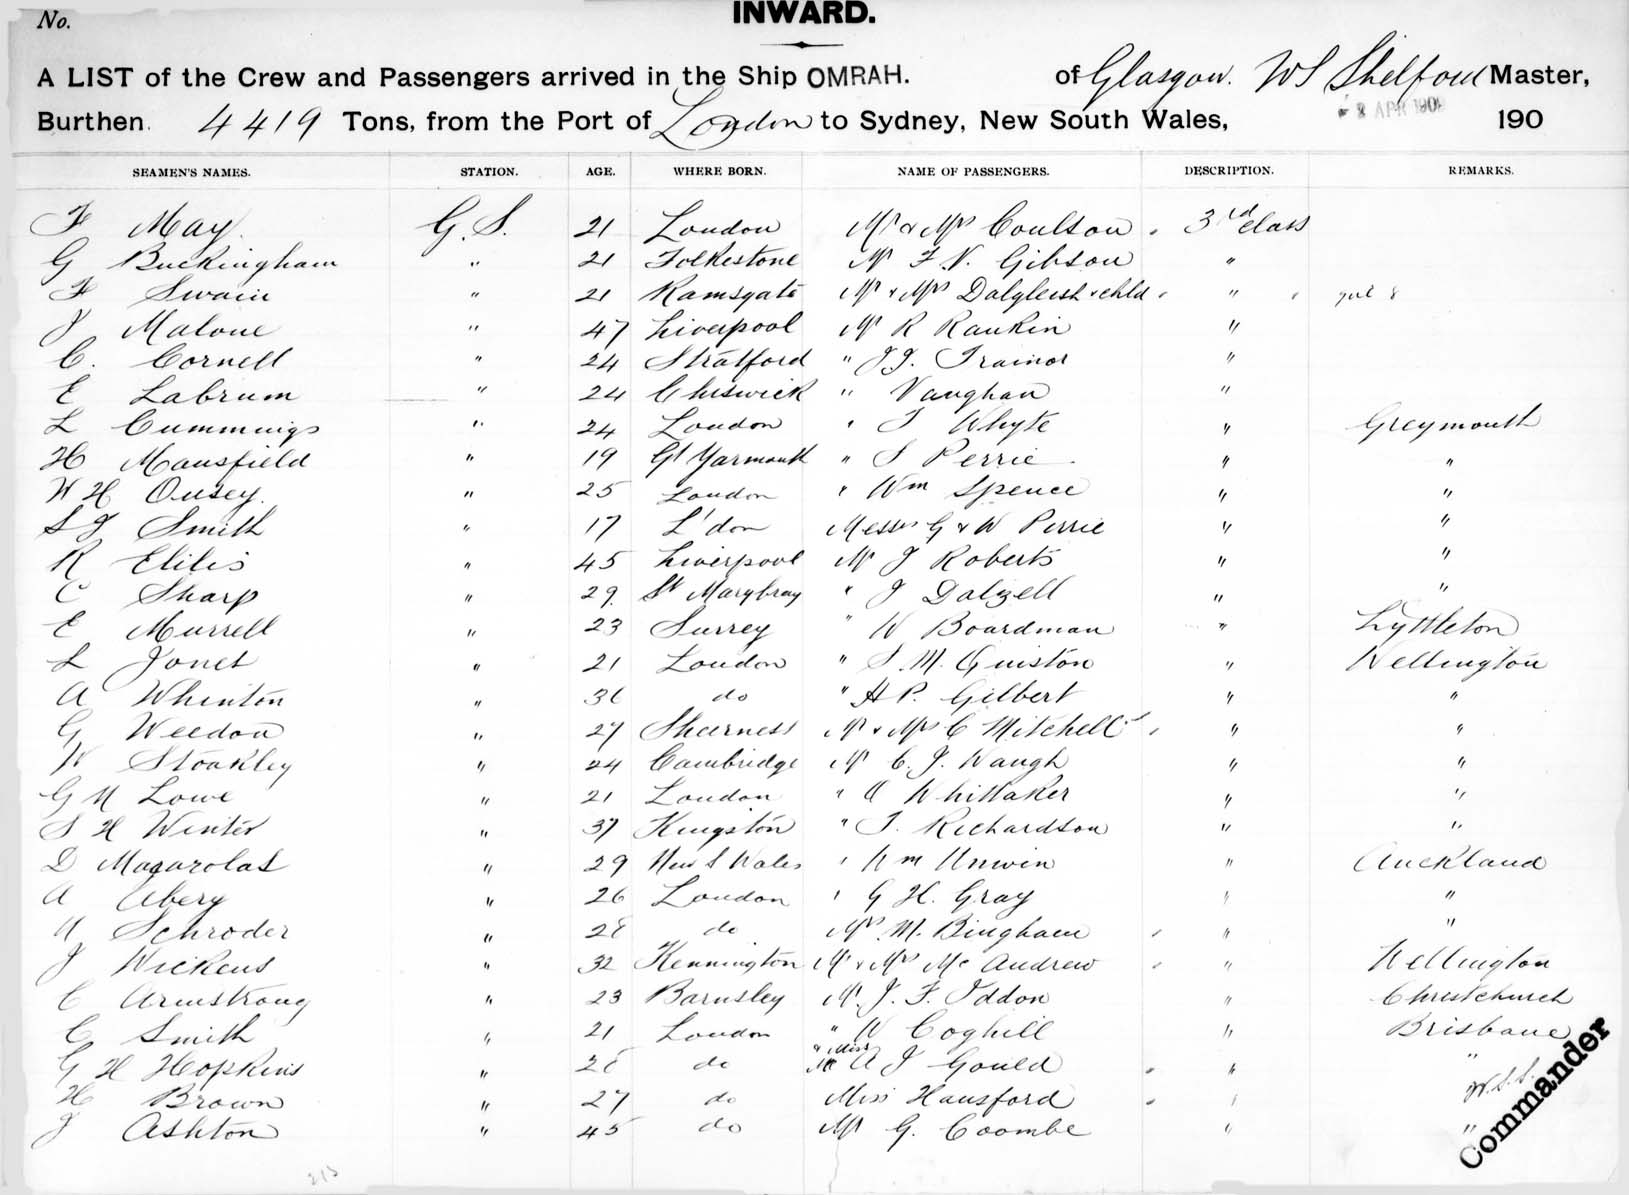 No.
INWARD.
A LIST of the Crew and Passengers arrived in the Ship OMRAH. of Glasgow. WS Shelford Master,
Burthen 4419 Tons, from the Port of London to Sydney, New South Wales, 8 APR 190 190
SEAMEN'S NAMES. STATION. AGE. WHERE BORN. NAME OF PASSENGERS. DESCRIPTION. REMARKS.
F May G.S. 21 London Mr & Mrs Coulson 3rd class
G Buckingham " 21 Folkestone Mr F.N. Gibson "
F Swain " 21 Ramsgate Mr & Mrs Dalgleish & chld "
J Malone " 47 Liverpool Mr R Rankin "
C. Cornell " 24 Stratford " J.J. Trainor "
E Labrum " 24 Chiswick " Vaughan "
L Cummings " 24 London " T Whyte " Greymouth
H Mansfield " 19 Gt Yarmouth " S Perrie " "
W H Ousey " 25 London " Wm Spence " "
S J Smith " 17 L'don Messrs G & W Perrie " "
R Ellis " 45 Liverpool Mr J Roberts " "
C Sharp " 29 St Marybray " J Dalzell " "
E Murrell " 23 Surrey " W Boardman " Lyttleton
L Jonet " 21 London " S.M. Guiston " Wellington
A Whinton " 36 do " H P. Gilbert " "
G Weedon " 27 Sheerness Mr & Mrs C Mitchell " "
W Stoakley " 24 Cambridge Mr C.J. Waugh " "
G M Lowe " 21 London " A Whittaker " "
S H Winter " 37 Kingston " T. Richardson " "
D Macarolas " 29 New S Wales " Wm Unwin " Auckland
A Abery " 26 London " G H. Gray " "
A Schroder " 28 do Mrs M. Bingham " "
J Wickens " 32 Kennington Mr & Mrs Mc Andrew " Wellington
C Armstrong " 23 Barnsley Mr J. F. Iddon " Christchurch
C Smith " 21 London " W Coghill " Brisbane
G H Hopkins " 28 do Miss A J Gould " "
H Brown " 27 do Miss Hansford " W.S.S.
J Ashton " 45 do Mr G. Coombe " "
Commander